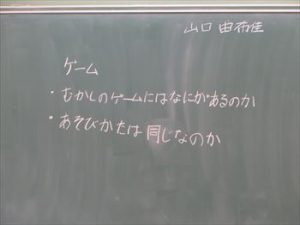 山口 由布佳
ゲーム
・むかしのゲームにはなにがあるのか
・あそびかたは同じなのか